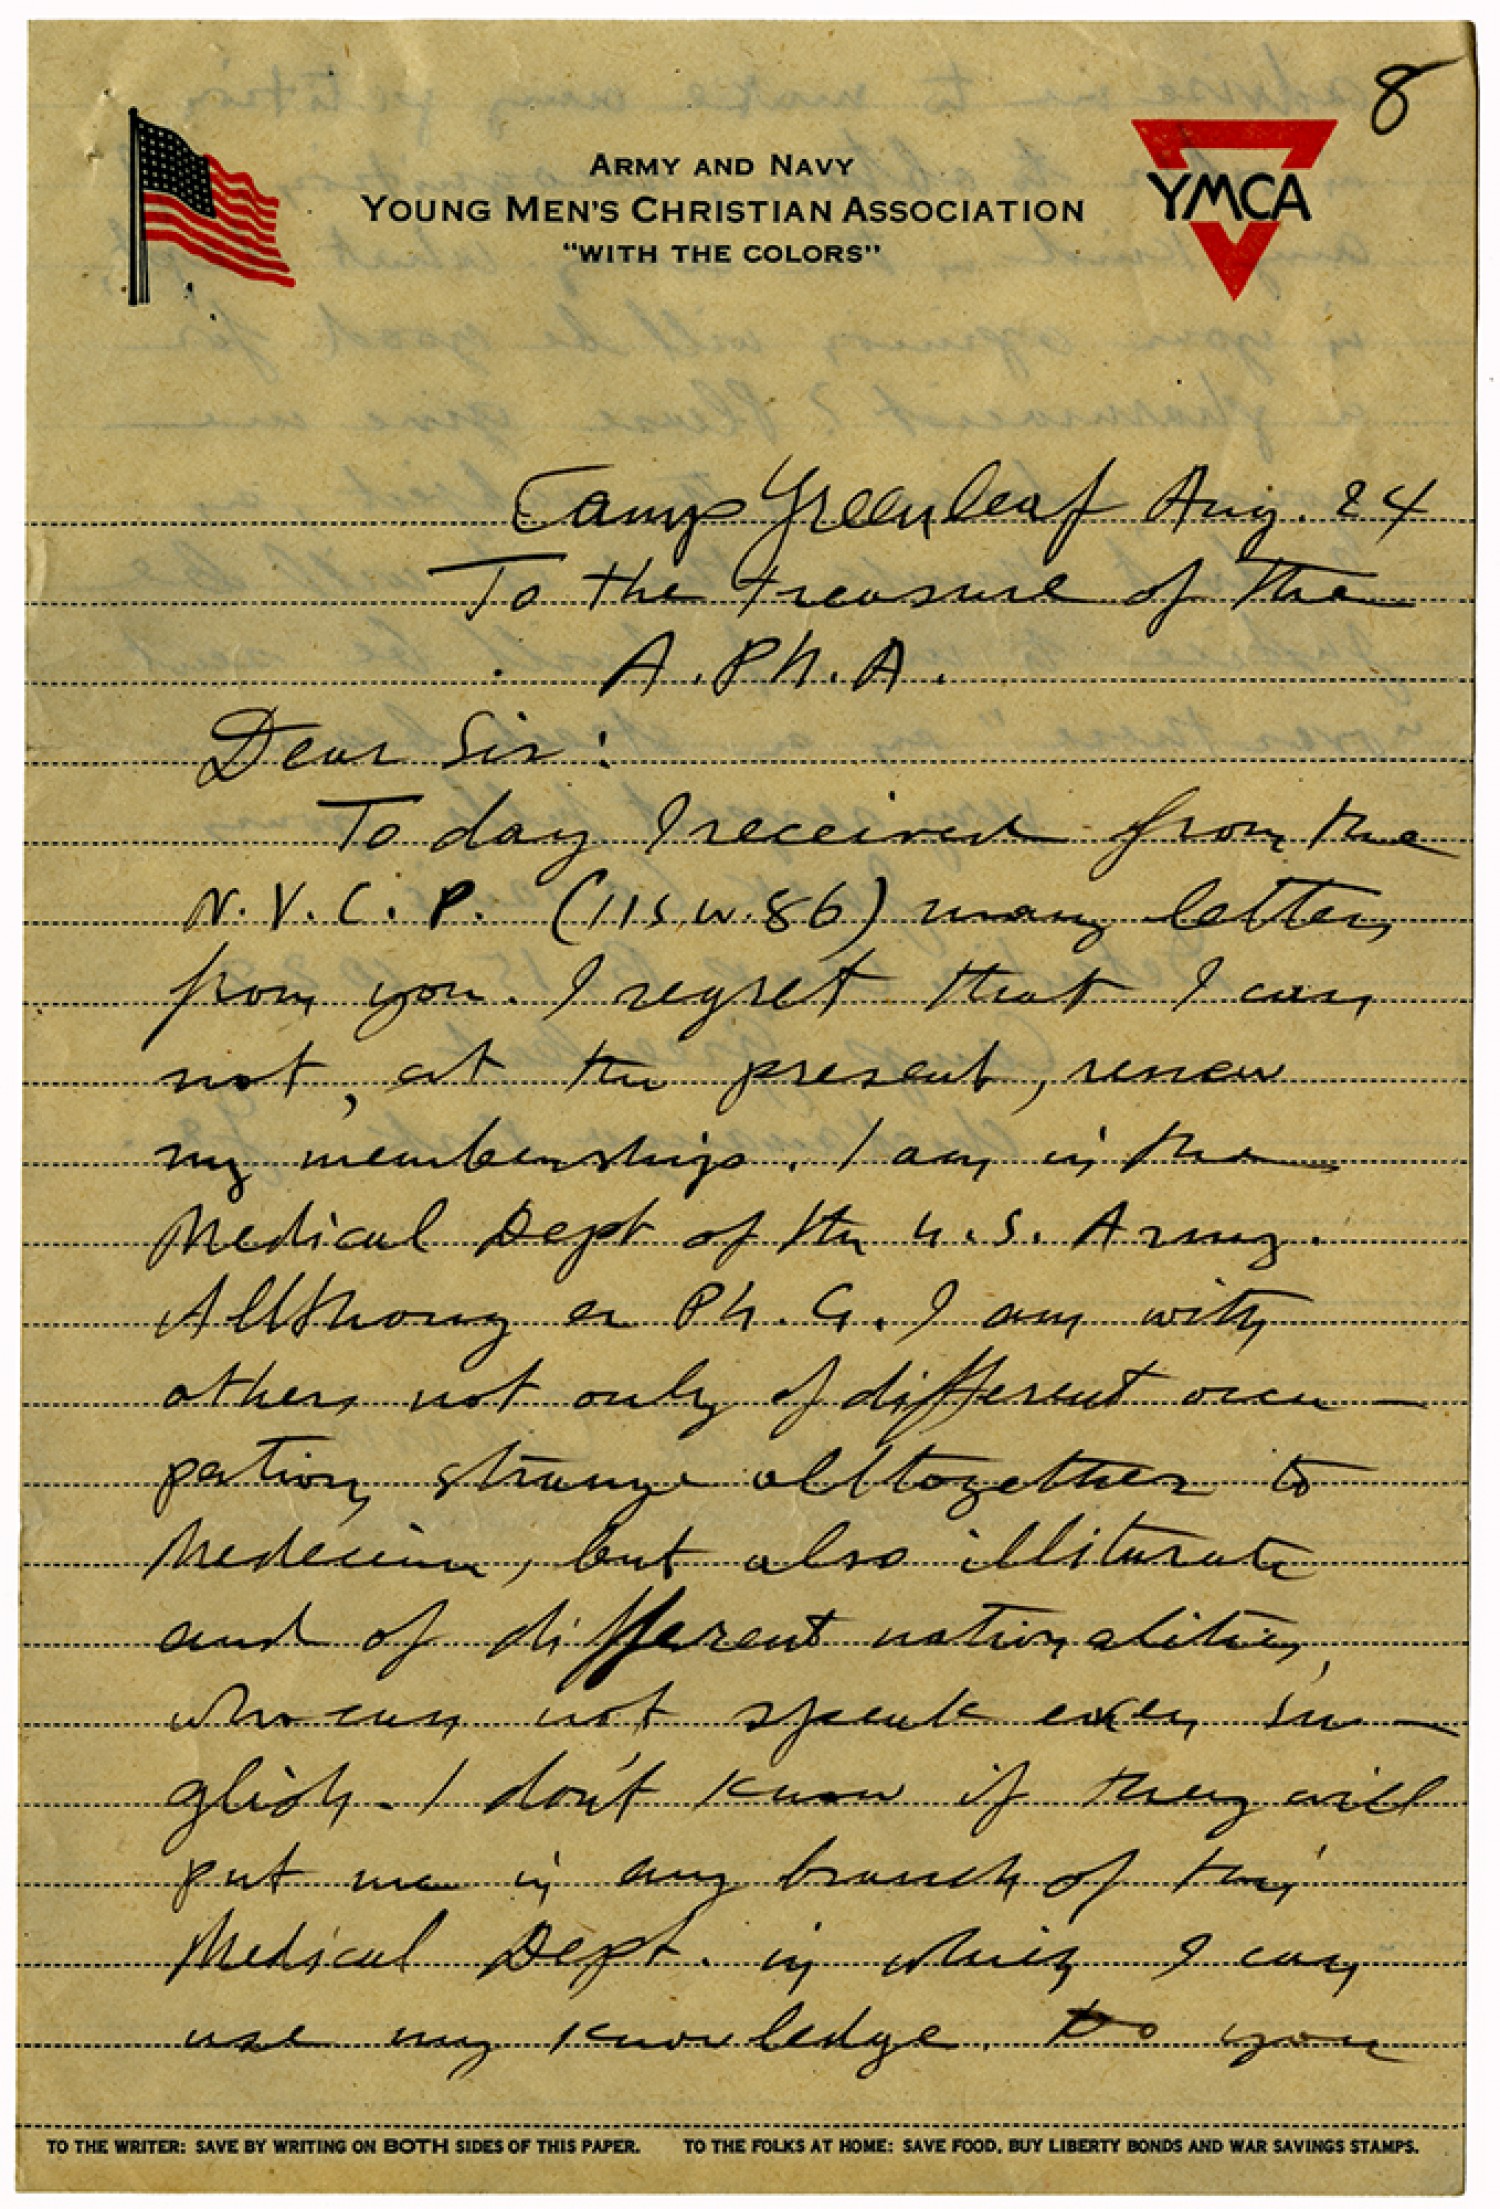 8
ARMY AND NAVY
YOUNG MEN'S CHRISTIAN ASSOCIATION
"WITH THE COLORS"
YMCA
Camp Greenleaf Aug. 24
To the treasure of the
A. Ph. A.
Dear Sir:
To day I received from the
N.Y.C.P. (115 W. 86) many letters
from you. I regret that I can
not, at the present, renew
my membership. I am in the
Medical Dept of the U.S. Army.
Allthoug a Ph. G. I am with
others not only of different occu-
pation, strange alltogether to
Medecine, but also illiturate
and of different nationalities,
who can not speak even En-
glish. I don't know if they will
put me in any branch of this
Medical Dept. in which I can
use my knowledge. Do you
TO THE WRITER: SAVE BY WRITING ON BOTH SIDES OF THIS PAPER. TO THE FOLKS AT HOME: SAVE FOOD, BUY LIBERTY BONDS AND WAR SAVINGS STAMPS.